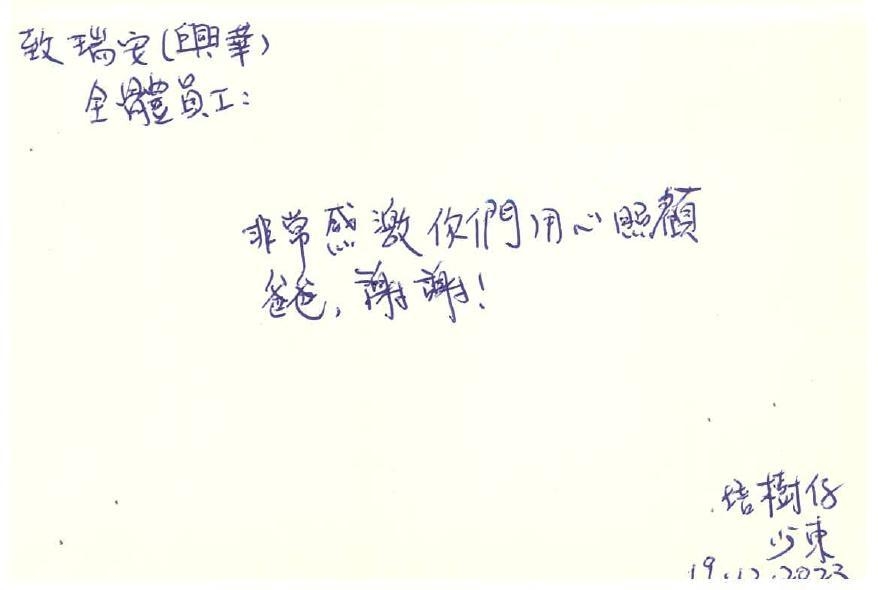 致瑞安(興華)
全體員工:
非常感激你們用心照顧
爸爸,謝謝!
培樹仔
少東
19.12.2023